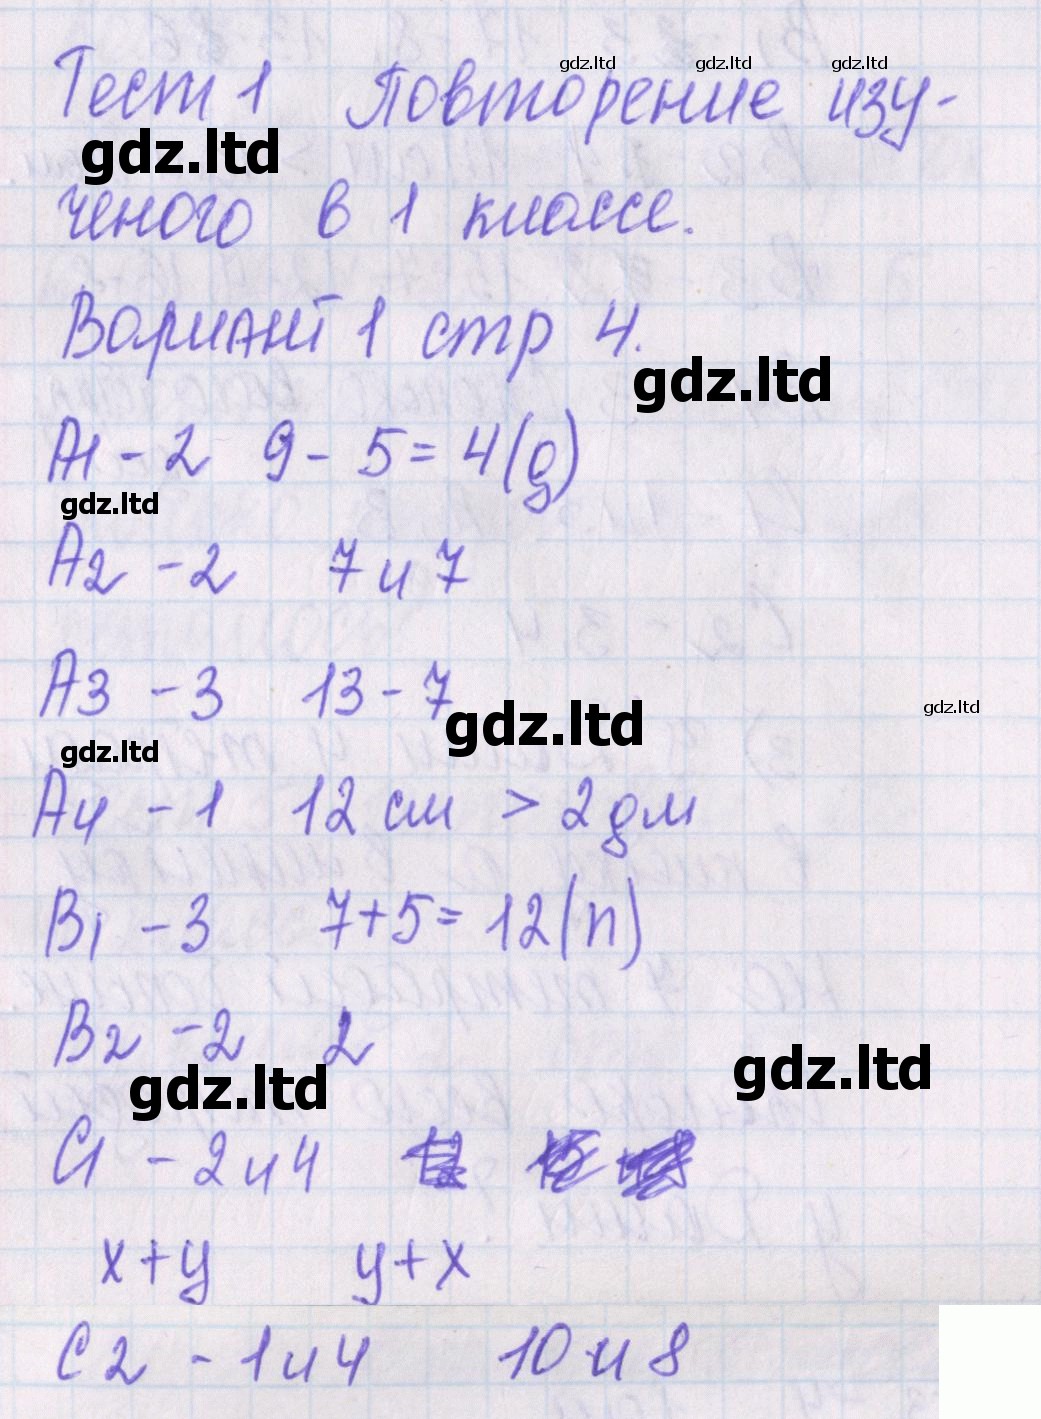 gdz.ltd gdz.ltd gdz.ltd
Тест 1 Повторение изу-
gdz.ltd
ченого в 1 классе.
Вариант 1 стр 4.
gdz.ltd
А1 - 2 9 - 5 = 4 (д)
gdz.ltd
А2 - 2 7 и 7
А3 - 3 13 - 7
gdz.ltd gdz.ltd
gdz.ltd
А4 - 1 12 см > 2 дм
В1 - 3 7+5= 12 (п)
В2 - 2 2
gdz.ltd gdz.ltd
С1 - 2 и 4
х+у у+х
С2 - 1 и 4 10 и 8